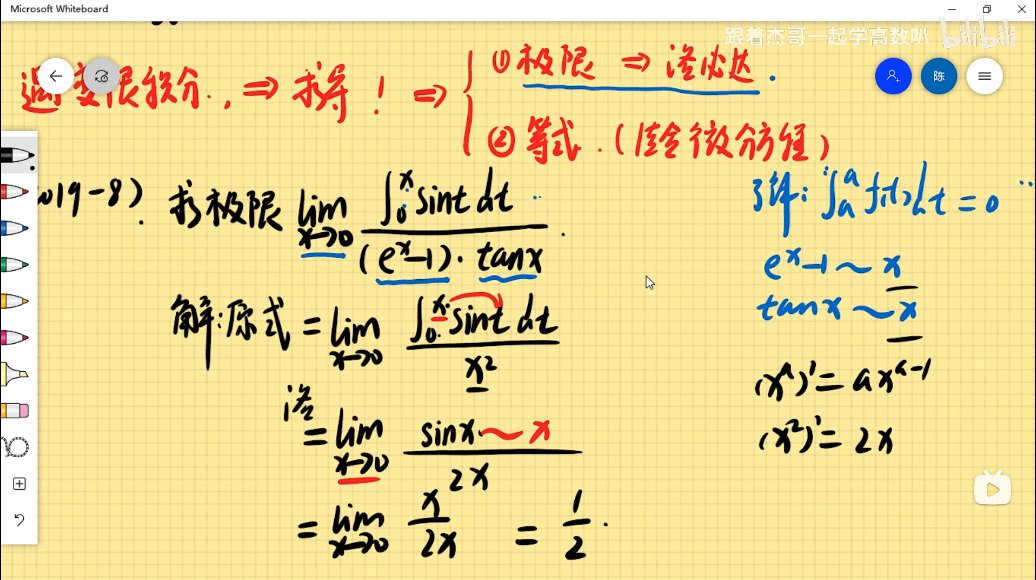 Microsoft Whiteboard
跟着杰哥一起学高数叭 bilibili
遇变限积分, ⇒ 求导! ⇒ { ①极限 ⇒ 洛必达.
②等式.(结合微分方程)
陈
019-8). 求极限 lim x→0 ∫₀ˣ sint dt / (eˣ-1)·tanx .
解: 原式 = lim x→0 ∫₀ˣ sint dt / x²
洛
= lim x→0 sinx ~ x / 2x
= lim x→0 x / 2x = 1/2 .
∫ₐᵃ f(t)dt = 0
eˣ-1 ~ x
tanx ~ x
(xᵃ)' = axᵃ⁻¹
(x²)' = 2x